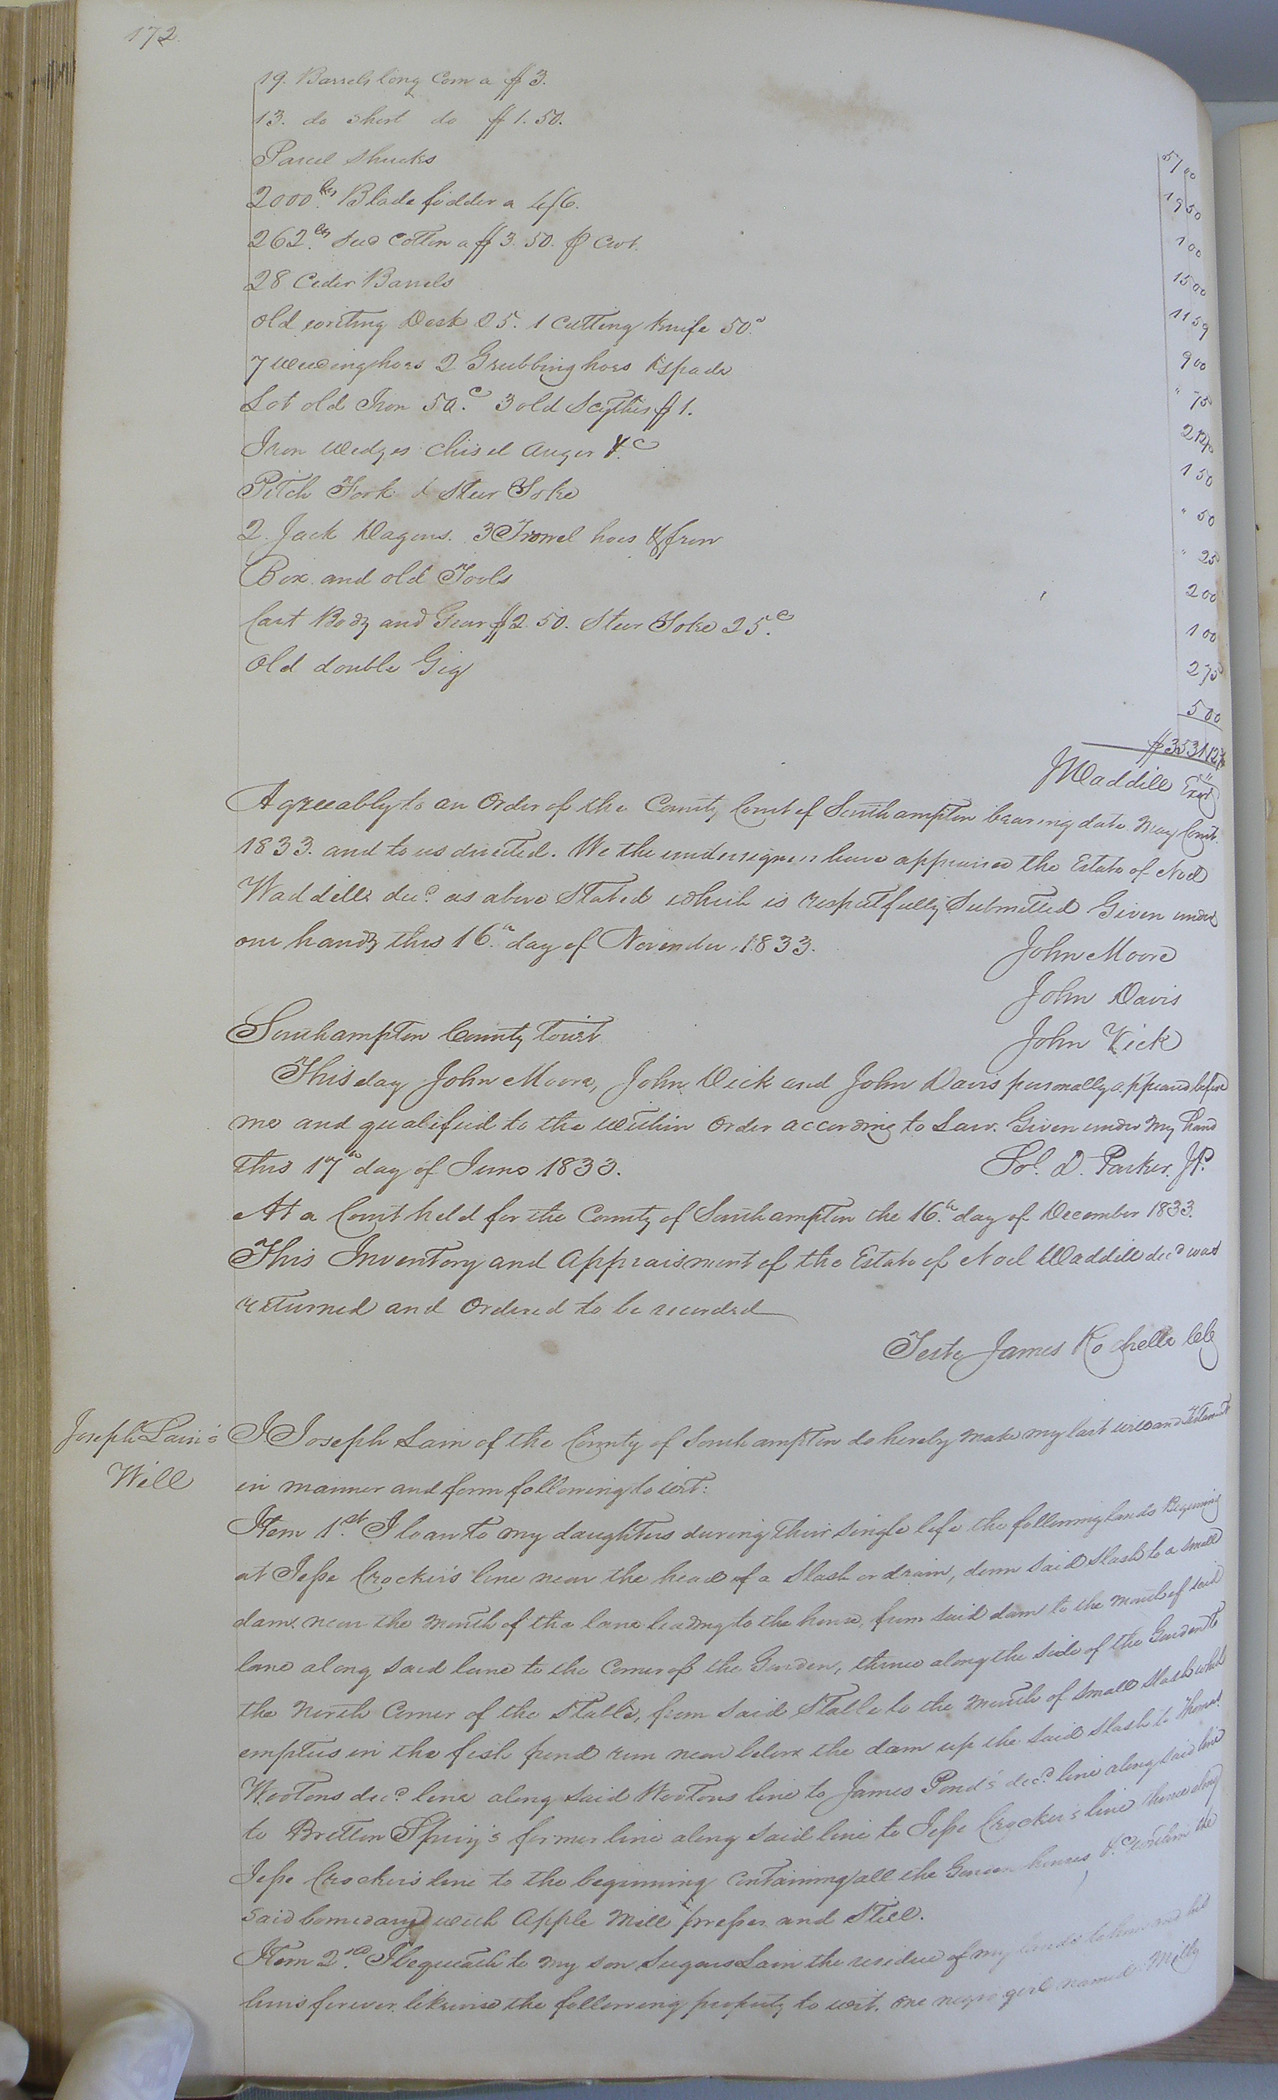 172.
19. Barrels long Corn a $3. 57 00
13. do short do $1.50. 19 50
Parcel Shucks 1 00
2000 lbs Blade fodder a 4/6. 15 00
262 lbs Seed Cotton a $3.50. Cwt. 11 59
28 Ceder Barrels 9 00
Old writing Desk 25. 1 Cutting Knife 50c " 75
7 Weeding hoes 2 Grubbing hoes & spade 2 12½
Lot old Iron 50.c 3 old Scythes $1. 1 50
Iron Wedges Chisel Auger &c " 50
Pitch Fork & Steer Yoke " 25
2 Jack Wagons. 3 Trowel hoes & frow 2 00
Box and old Tools 1 00
Cart Body and Gear $2.50. Steer Yoke 25.c 2 75
Old double Gig 5 00
$3531.12
J Waddill Exor
Agreeably to an Order of the County Court of Southampton bearing date May Court
1833. and to us directed. We the undersigned have appraised the Estate of Noel
Waddills decd as above Stated which is respectfully Submitted Given under
our hands this 16.th day of November 1833.
John Moore
John Davis
John Vick
Southampton County Towit
This day John Moore, John Vick and John Davis personally appeared before
me and qualified to the within order according to Law. Given under my hand
this 17th day of June 1833. Sol. D. Parker. J.P.
At a Court held for the County of Southampton the 16.th day of December 1833.
This Inventory and Appraisment of the Estate of Noel Waddill decd was
returned and Ordered to be recorded
Teste James Rochelle Clk
Joseph Lain's
Will
I Joseph Lain of the County of Southampton do hereby make my last will and Testament
in manner and form following to wit:
Item 1.st I loan to my daughters during their single life the following lands Beginning
at Jesse Crocker's line near the head of a Slash or drain, down said Slash to a small
dam near the mouth of the lane leading to the house, from said dam to the mouth of said
lane along said lane to the Corner of the Garden, thence along the side of the Garden to
the North Corner of the Stable, from said Stable to the Mouth of small Slash which
empties in the fish pond run near below the dam up the said Slash to Thomas
Wootons decd line along said Wootons line to James Pond's decd line along said line
to Britton Spivy's former line along said line to Jesse Crocker's line thence along
Jesse Crockers line to the beginning Containing all the Garden houses &c within the
said boundary with Apple Mill presses and Still.
Item 2.nd I bequeath to my son Sugars Lain the residue of my lands to him and his
heirs forever, likewise the following property to wit, one negro girl named Milly